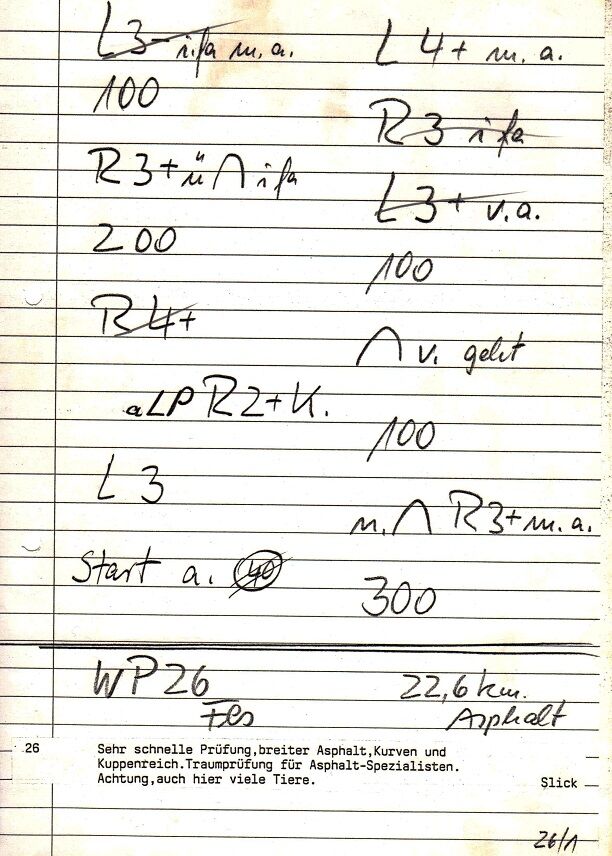 L3- ifa m.a.
100
R3+ ü ∩ ifa
200
R4+
aLP R2+ K.
L 3
Start a. 40
L 4+ m.a.
R3 ifa
L3+ v.a.
100
∩ v. geht
100
n. ∩ R3+ m.a.
300
WP26
Fes
22,6 km.
Asphalt
26
Sehr schnelle Prüfung,breiter Asphalt,Kurven und
Kuppenreich.Traumprüfung für Asphalt-Spezialisten.
Achtung,auch hier viele Tiere.
Slick
26/1